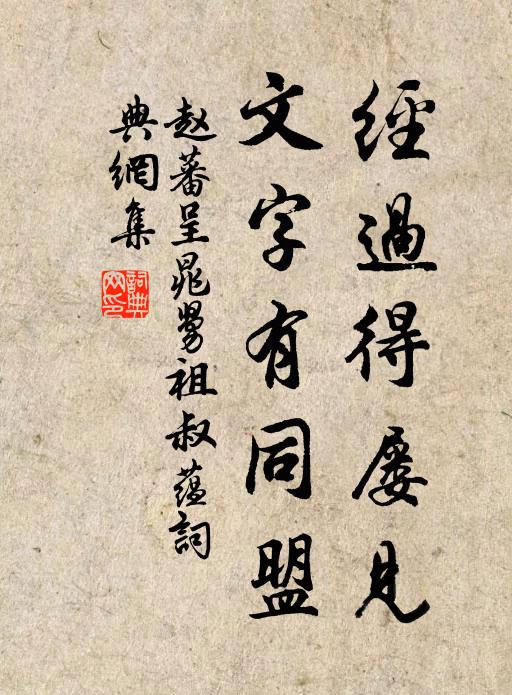 經過得屡見
文字有同盟
赵蕃呈晁舅祖叔蕴詞
典網集
詞典
网印